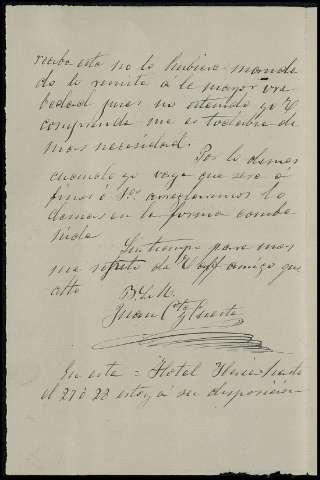 reciba esta no lo hubiera manda
do lo remita á la mayor bre
bedad pues no estando yo V
comprenda me es todabia de
mas necesidad.
Por lo demas
cuando yo vaya que sera á
fines ó 1os. arreglaremos lo
demas en la forma combe
nida
Sin tiempo para mas
me repito de V affmo amigo que
atto
B. L. M.
Juan
y Puerta
En esta = Hotel
el 27 ó 28 estoy á su disposicion